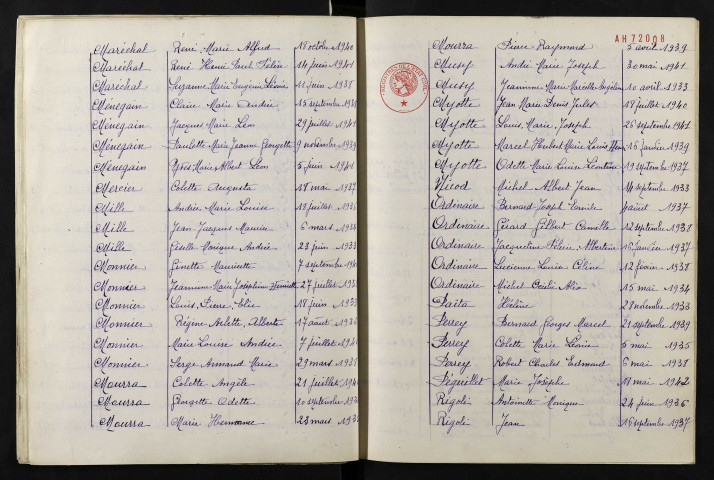 Maréchal René Marie Alfred 18 octobre 1940
Maréchal René Henri Paul Félicien 14 juin 1941
Maréchal Suzanne Marie Eugénie Léonie 11 juin 1938
Ménegain Claire Marie Andrée 15 septembre
Ménegain Jacques Marie Léon 29 juillet 1941
Ménegain Paulette Marie Jeanne Georgette 9 novembre 1939
Ménegain Yves Marie Albert Léon 5 juin 1941
Mercier Colette Augusta 18 mai 1937
Mille Andrée Marie Louise 13 juillet
Mille Jean Jacques Maurice 6 mars
Mille Giselle Monique Andrée 23 juin 1933
Monnier Ginette Mauricette 7 septembre
Monnier Jeannine Marie Joséphine Henriette 27 juillet
Monnier Louis Pierre 18 juin
Monnier Régine Arlette Alberte 17 août
Monnier Marie Louise Andrée 7 juillet
Monnier Serge Armand Marie 29 mars
Mourra Colette Angèle 21 juillet
Mourra Georgette Odette 10 septembre
Mourra Marie Hermance 23 mars
AH72008
Mourra Pierre Raymond 5 avril 1939
Musy André Marie Joseph 30 mai 1941
Musy Jeannine Marie Marcelle 10 avril 1933
Myotte Jean Marie Denis Jules 18 juillet 1940
Myotte Louis Marie Joseph 26 septembre 1941
Myotte Marcel Herbert Marie Louis 16 janvier 1939
Myotte Odette Marie Louise Léontine 19 septembre 1937
Nicod Michel Albert Jean 14 septembre 1933
Ordinaire Bernard Joseph Emile août 1937
Ordinaire Gérard Gilbert Camille 12 septembre 1938
Ordinaire Jacqueline Félicie Albertine 16 janvier 1937
Ordinaire Lucienne Louise Céline 12 février 1938
Ordinaire Michel 15 mai 1934
Hélène 28 novembre 1933
Perrey Bernard Georges Marcel 21 septembre 1939
Perrey Colette Marie Léonie 5 mai 1935
Perrey Robert Charles Edmond 6 mai 1938
Péquillet Marie Josèphe 18 mai 1942
Rigoli Antoinette Monique 24 juin 1936
Rigoli Jean 16 septembre 1937